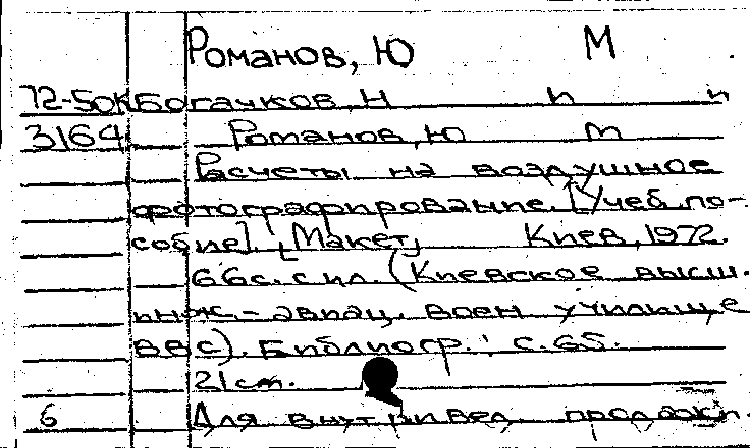 Романов, Ю М
72-50К Богачков, Н п п
3164 Романов, Ю m
Расчеты на воздушное
фотографирование. [Учеб. по-
собие]. [Макет] Киев, 1972.
66с. с ил. (Киевское высш.
инж.-авиац. воен училище
ВВС). Библиогр.: с. 65.
21 cm.
6 Для внутривед. продажи.